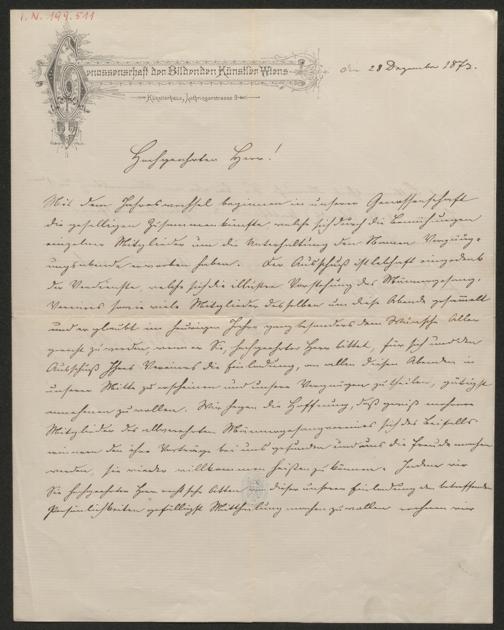 I.N. 199.511
Genossenschaft der Bildenden Künstler Wiens
Künstlerhaus, Lothringerstrasse 9
den 28 Dezember 1873.
Hochgeehrter Herr!
Mit dem Jahreswechsel beginnen in unserer Genossenschaft
die geselligen Zusammenkünfte, welche sich durch die Bemühungen
einzelner Mitglieder um die Unterhaltung den Namen Vergnü-
gungsabende erworben haben. Der Ausschuß ist lebhaft eingedenk
der Verdienste, welche sich die illustre Vorstehung des Männergesang-
Vereines sowie viele Mitglieder desselben um diese Abende gesammelt
und er glaubt im heurigen Jahre ganz besonders dem Wunsche Aller
gerecht zu werden, wenn er Sie, hochgeehrter Herr bittet, für sich und den
Ausschuß Ihres Vereines die Einladung, an allen diesen Abenden in
unserer Mitte zu erscheinen und unsere Vergnügen zu theilen, gütigst
annehmen zu wollen. Wir hegen die Hoffnung, daß gewiß mehrere
Mitglieder des altgeehrten Männergesangvereines sich des Beifalls
erinnern den ihre Vorträge bei uns gefunden und uns die Freude machen
werden, sie wieder willkommen heißen zu können. Indem wir
Sie hochgeehrter Herr bitten dieser unserer Einladung den betreffenden
Persönlichkeiten gefälligst Mittheilung machen zu wollen nehmen wir